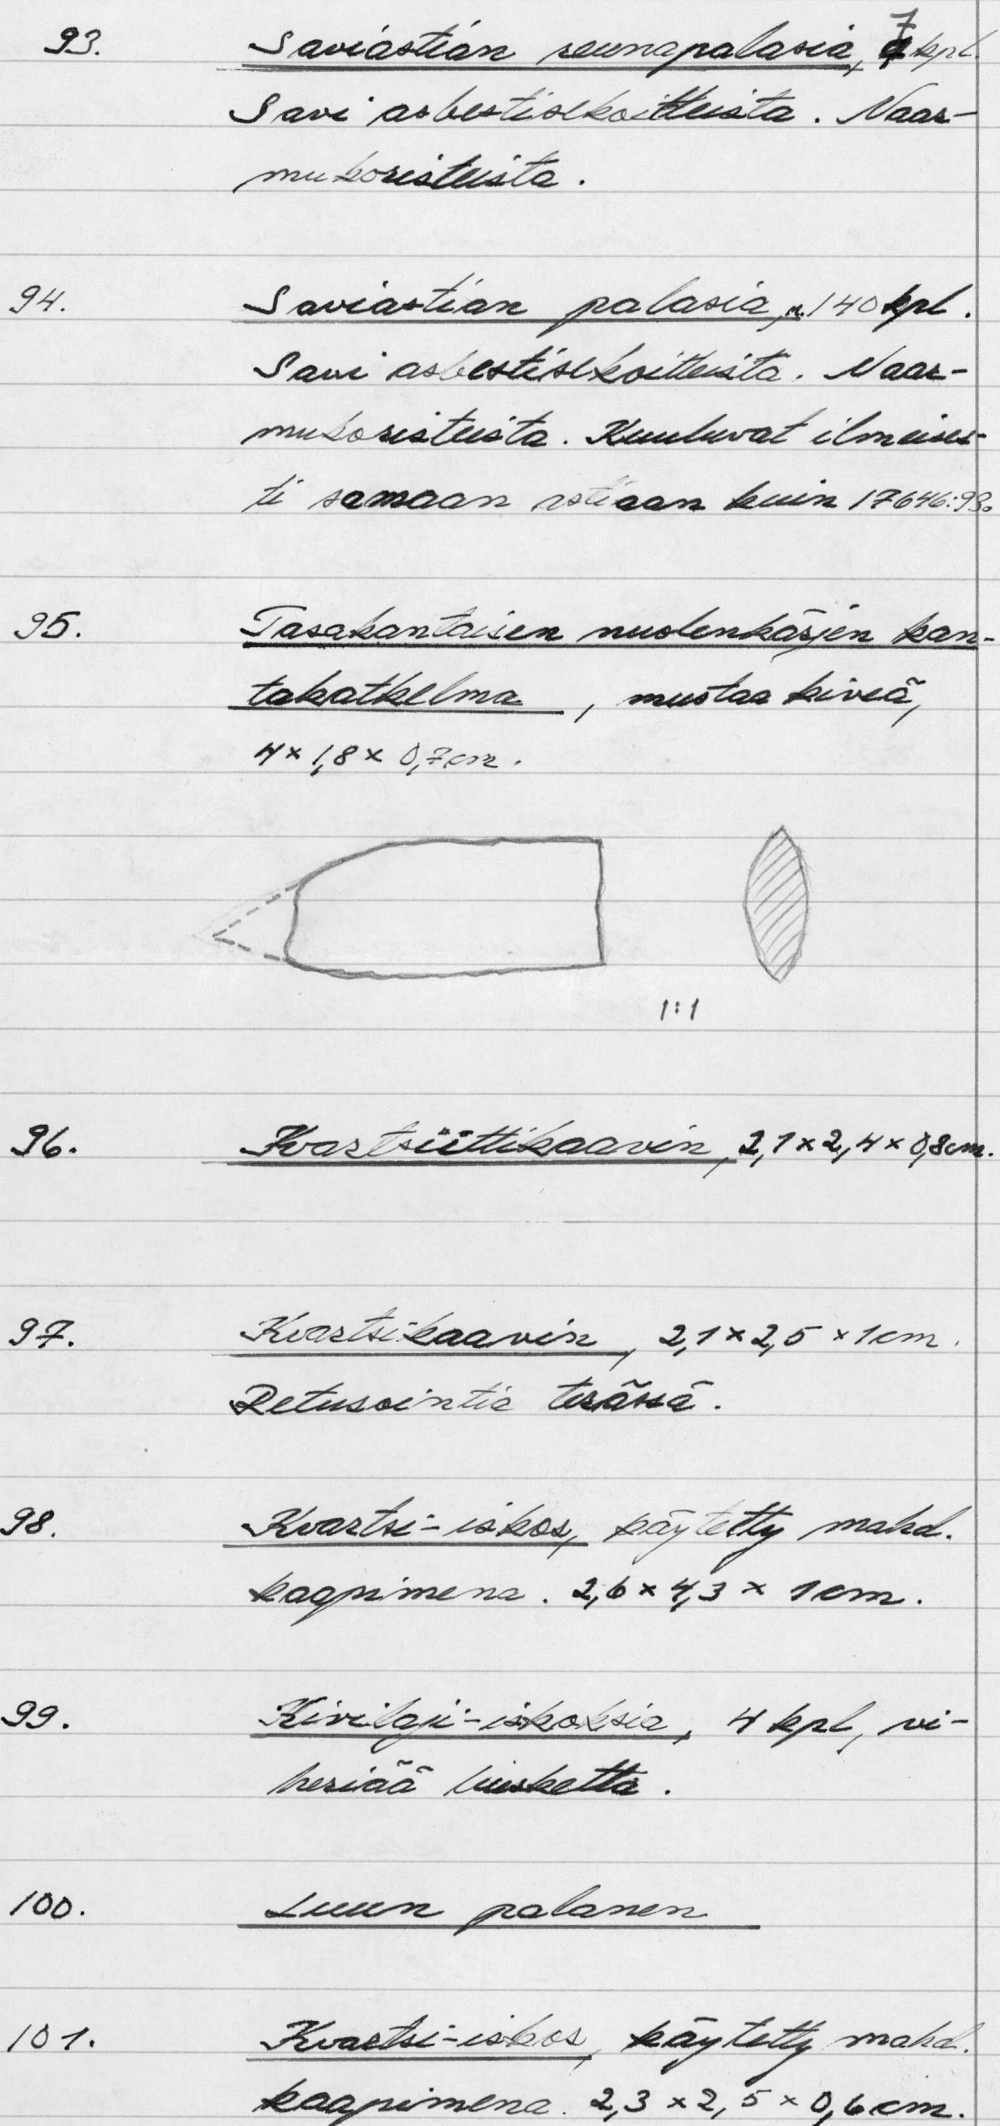 93. Saviastian reunapalasia, 7 kpl.
Savi asbestisekoitteista. Naar-
mukoristeista.
94. Saviastian palasia, n. 140 kpl.
Savi asbestisekoitteista. Naar-
mukoristeista. Kuuluvat ilmeises-
ti samaan astiaan kuin 17646:93.
95. Tasakantaisen nuolenkärjen kan-
takatkelma, mustaa kiveä,
4 x 1,8 x 0,7 cm.
1:1
96. Kvartsiittikaavin, 2,1 x 2,4 x 0,8 cm.
97. Kvartsikaavin, 2,1 x 2,5 x 1 cm.
Retusointia terässä.
98. Kvartsi-iskos, käytetty mahd.
kaapimena. 2,6 x 4,3 x 1 cm.
99. Kivilaji-iskoksia, 4 kpl, vi-
heriää liusketta.
100. Luun palanen
101. Kvartsi-iskos, käytetty mahd.
kaapimena. 2,3 x 2,5 x 0,6 cm.